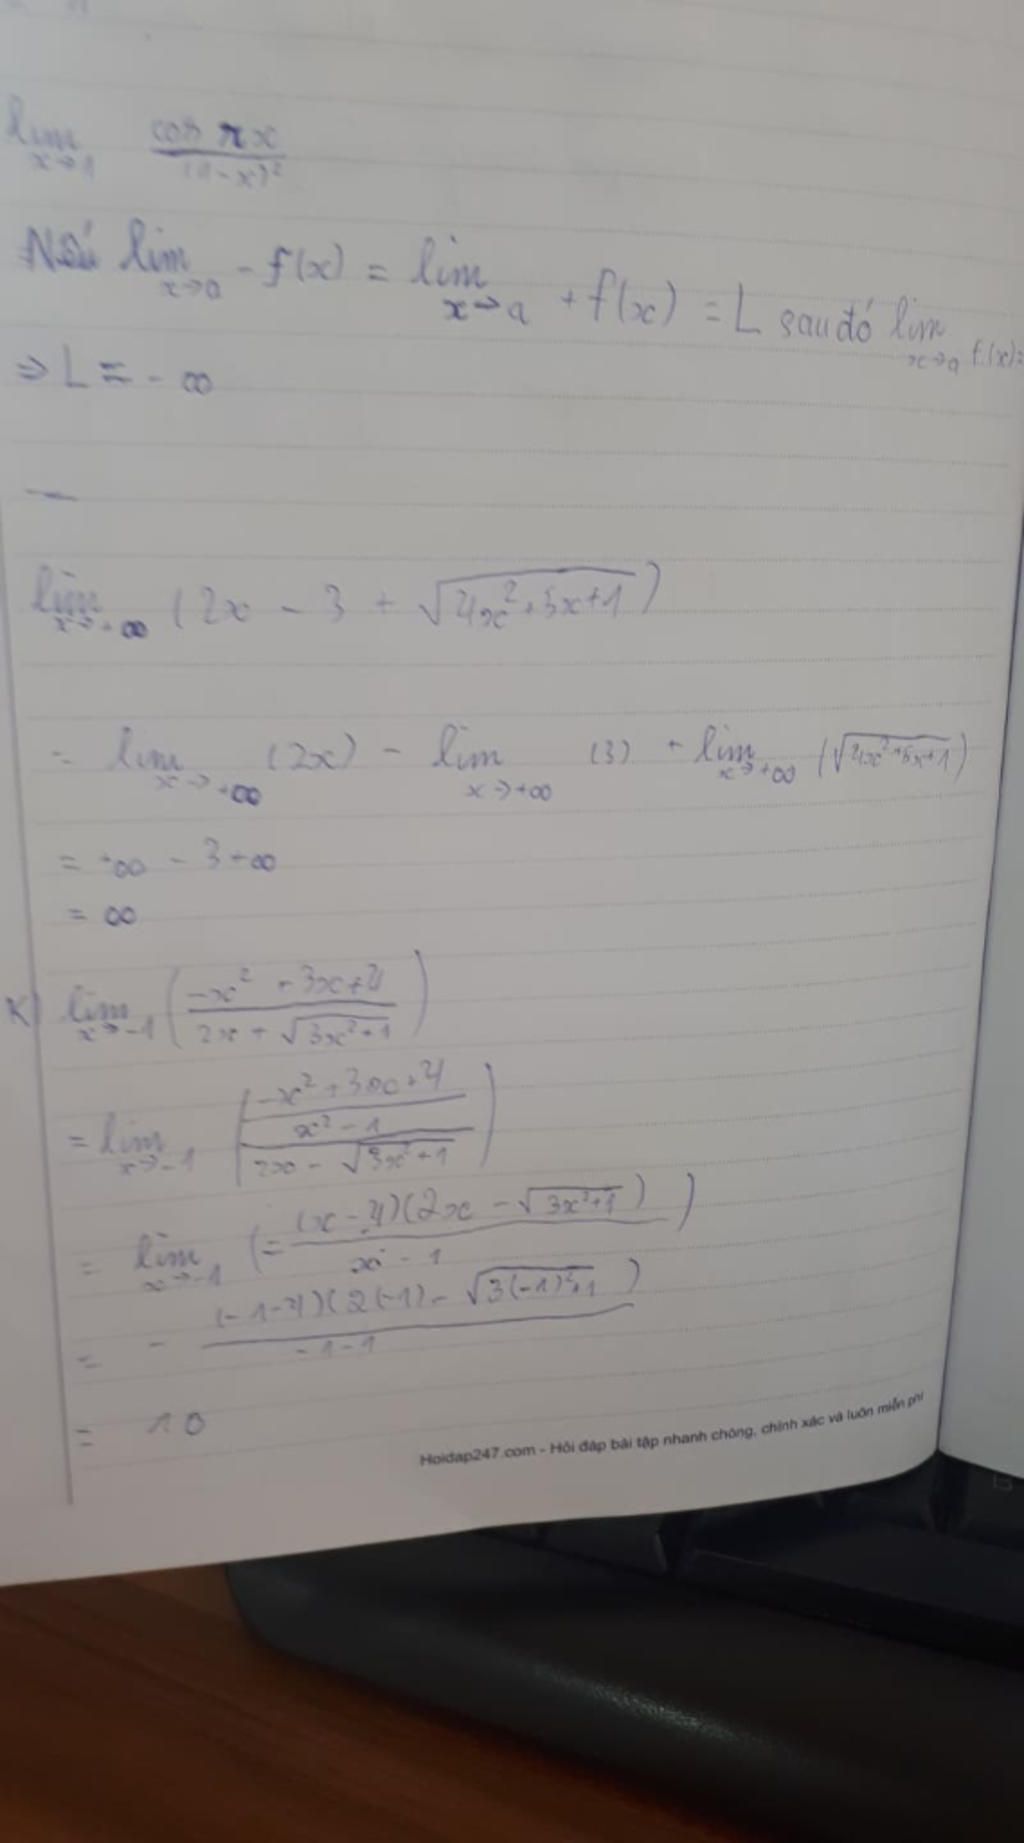 lim x→1 cos πx / (1-x)²
Nếu lim x→a - f(x) = lim x→a + f(x) = L sau đó lim x→a f(x)=
⇒ L = - ∞
lim x→+∞ (2x - 3 + √4x²+5x+1)
= lim x→+∞ (2x) - lim x→+∞ (3) + lim x→+∞ (√4x²+5x+1)
= +∞ - 3 + ∞
= ∞
K) lim x→-1 (-x² + 3x + 4 / 2x + √3x²+1)
= lim x→-1 (-x² + 3x + 4 / x² - 1 / 2x - √3x²+1)
= lim x→-1 (= (x-4)(2x - √3x²+1) / x - 1)
= - (-1-4)(2(-1) - √3(-1)²+1) / -1-1
= 10
Hoidap247.com - Hỏi đáp bài tập nhanh chóng, chính xác và luôn miễn phí